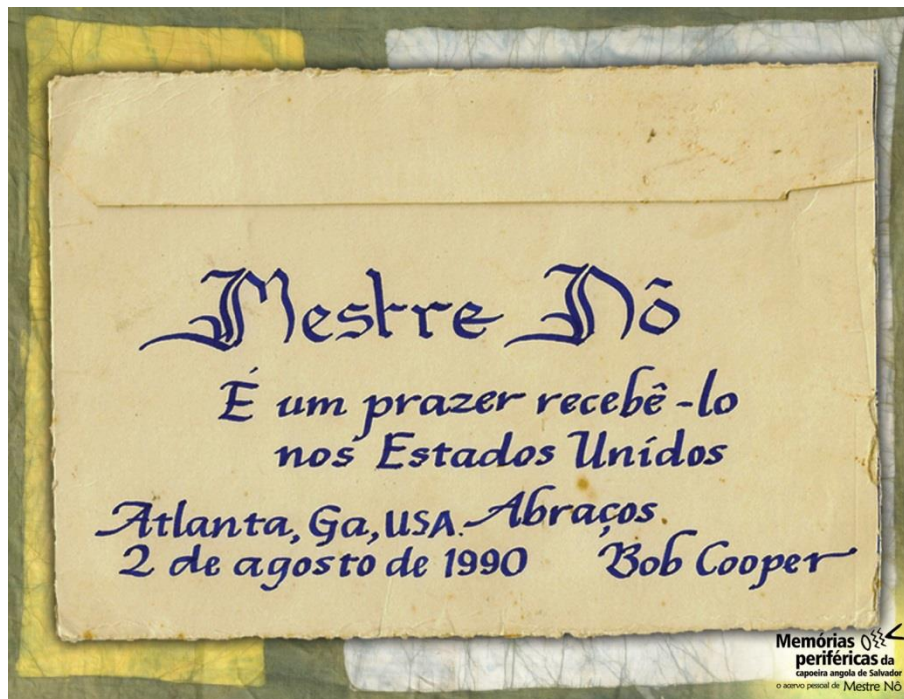 Mestre Nô
É um prazer recebê-lo
nos Estados Unidos
Abraços.
Atlanta, Ga, USA.
2 de agosto de 1990
Bob Cooper
Memórias
periféricas da
capoeira angola de Salvador
o acervo pessoal de Mestre Nô